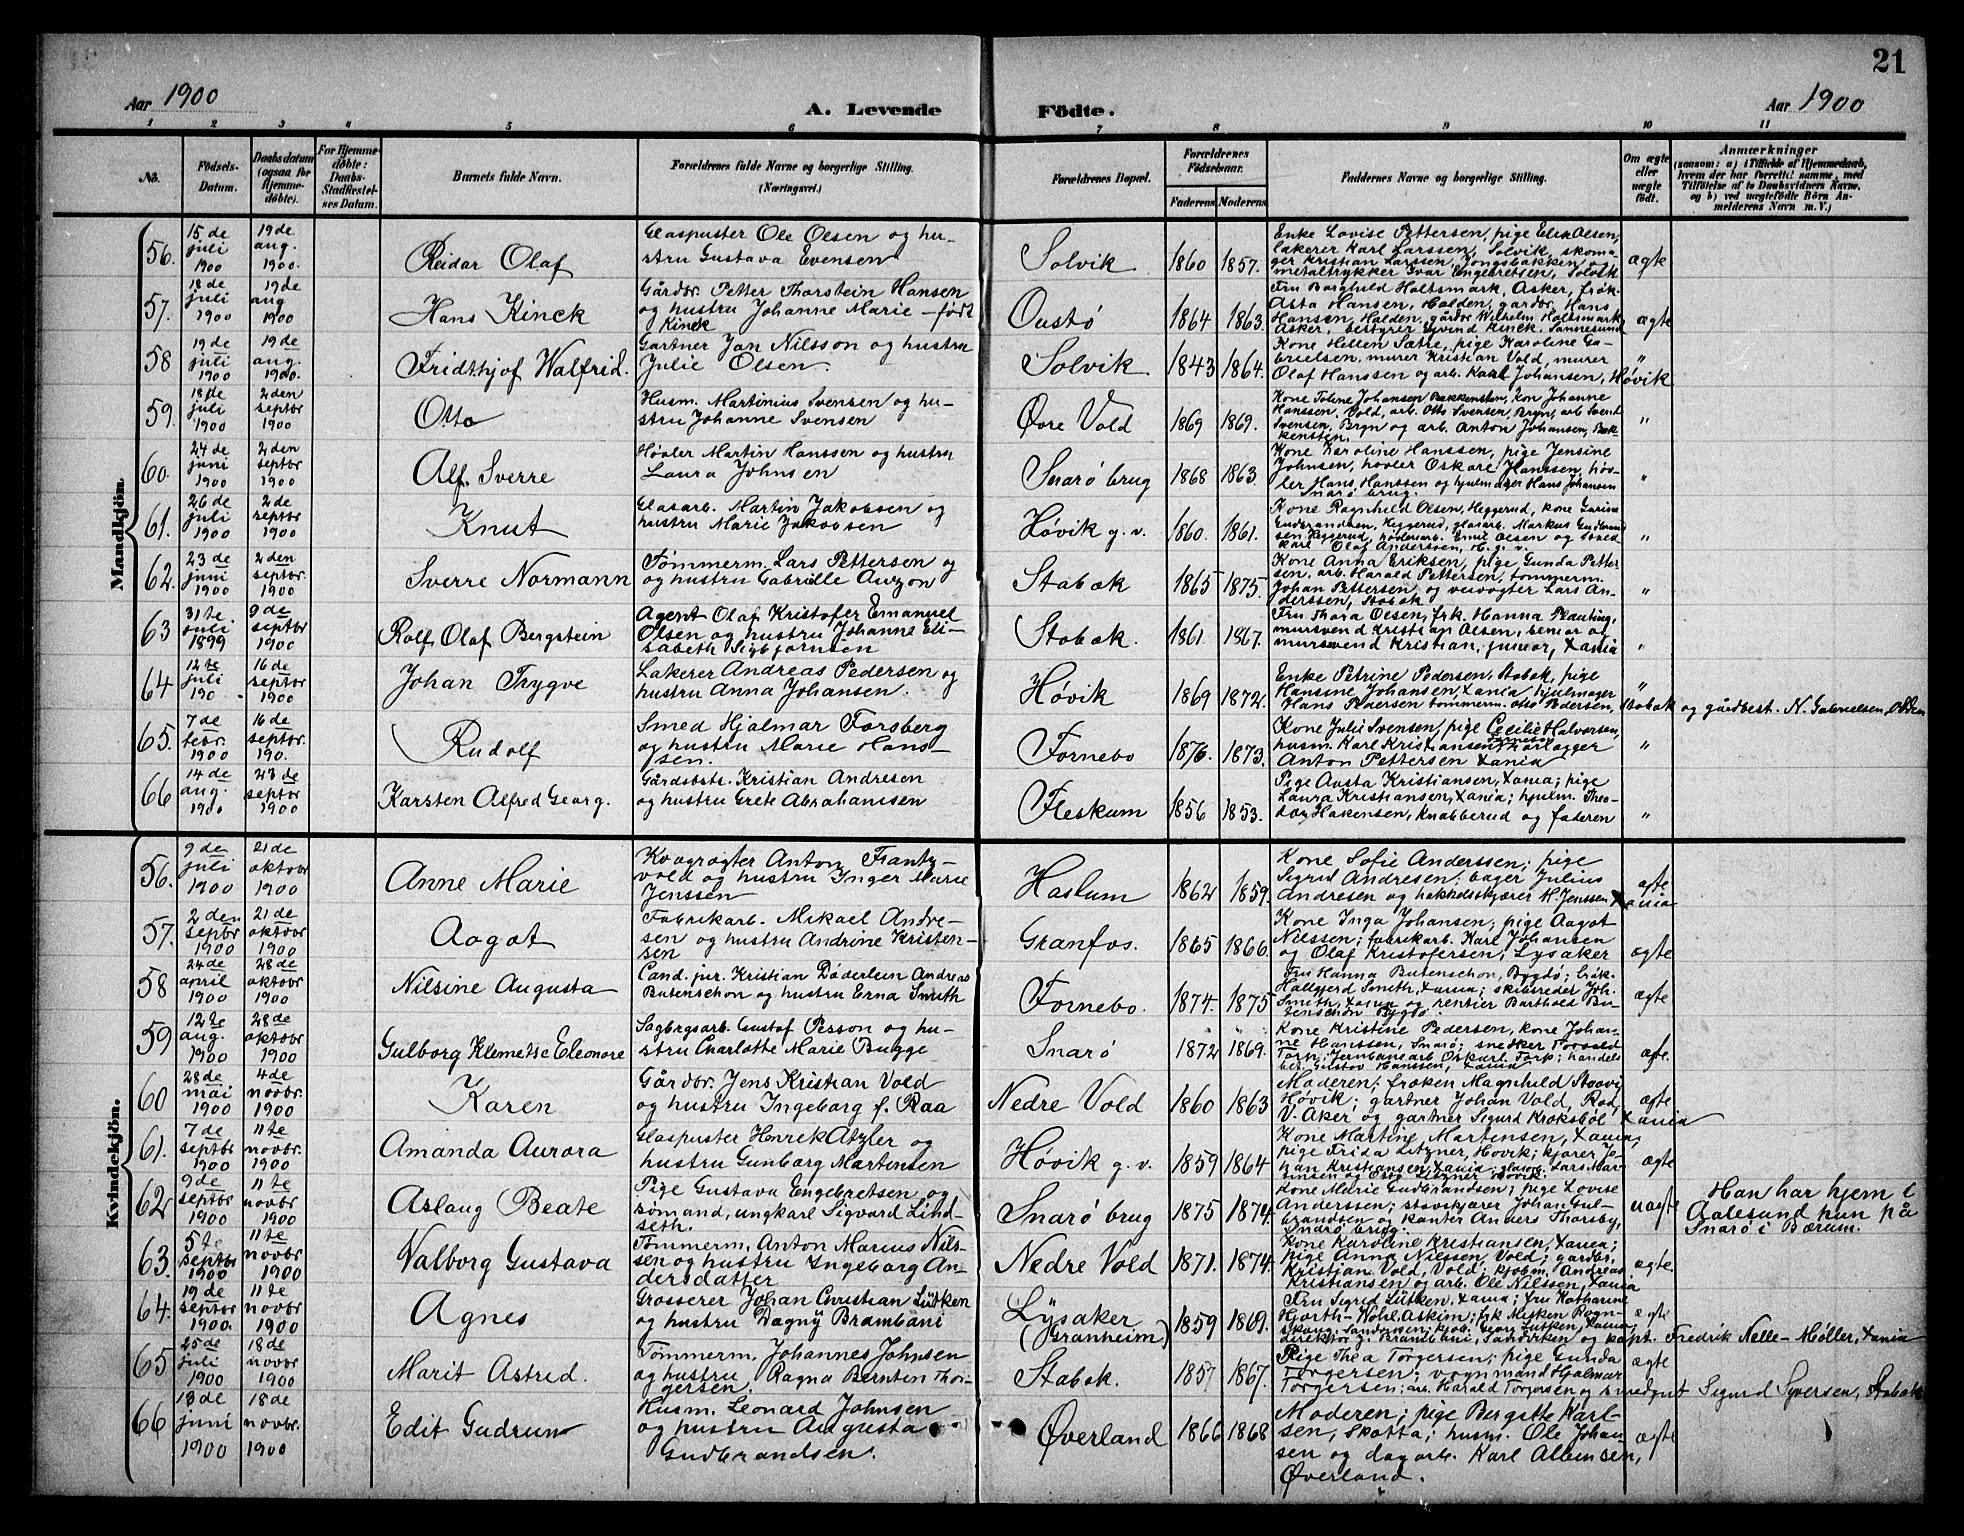 21
Aar 1900
A. Levende Födte.
Aar 1900
1 2 3 4 5 6 7 8 9 10 11
No.
Födsels-Datum.
Daabsdatum (ogsaa for Hjemme-döbte).
For Hjemme-döbte: Daabs-Stadfæstel-ses Datum.
Barnets fulde Navn.
Forældrenes fulde Navne og borgerlige Stilling.
(Næringsvei.)
Forældrenes Bopæl.
Forældrenes Födselsaar.
Faderens Moderens
Faddernes Navne og borgerlige Stilling.
Om ægte eller uægte födt.
Anmærkninger
(saasom: a) i Tilfælde af Hjemmedaab, hvem der har forrettet samme, med Tilföielse af to Daabsvidners Navne, og b) ved uægtefödte Börn Anmelderens Navn m. V.)
Mandkjön.
56. 15 de juli 1900 19 de aug. 1900. Reidar Olaf
Glaspuster Ole Olsen og hu-
stru Gustava Evensen
Solvik 1860 1857.
Enke Lovise Pettersen, pige Elen Olsen,
lakerer Karl Larssen, Solvik, skoma-
ger Kristian Larssen, Jongsbakken og
metaltrykker Ivar Engebretsen, Solvik
ægte
57. 18 de juli 1900 19 de aug 1900 Hans Kinck
Gårdbr. Petter Thorstein Hansen
og hustru Johanne Marie - født
Kinck
Oustø 1864 1863.
Fru Borghild Holtsmark, Asker, frøk.
Asta Hansen, Halden, gårdbr. Hans
Hansen, Halden, gårdbr Wilhelm Holtsmark
Asker, bestyrer Eyvind Kinck, Sannesund
ægte
58 19 de juli 1900 19 de aug. 1900. Fridthjof Walfrid.
Gartner Jan Nilsson og hustru
Julie Olsen.
Solvik 1843 1864.
Kone Hellen Sætre, pige Karoline Ga-
brielsen, murer Kristian Vold, murer
Olaf Hanssen og arb. Karl Johansen, Høvik
"
59. 18 de juli 1900 2 den septbr 1900 Otto
Husm. Martinius Svensen og hu-
stru Johanne Svensen
Øvre Vold 1869 1869.
Kone Toline Johansen Bakkensten, kon Johanne
Hanssen, Vold, arb. Otto Svensen, Bryn, arb Svent
Svensen, Bryn og arb. Anton Johansen, Bak-
kensten.
"
60. 24 de juni 1900 2 den septbr 1900 Alf Sverre
Høvler Martin Hanssen og hustru
Laura Johnsen
Snarø brug 1868 1863.
Kone Karoline Hanssen, pige Jensine
Johnsen, høvler Oskar Hanssen, høv-
ler Hans Hanssen og hjulmager Hans Johansen
Snarø brug.
"
61. 26 de juli 1900 2 de septbr 1900 Knut
Glasarb. Martin Jakobsen og
hustru Marie Jakobsen
Høvik g. v. 1860. 1861.
Kone Ragnhild Olsen, Heggerud, kone Karine
Gudbrandsen, Heggerud, glasarb. Markus Gudbrand
sen Heggerud, Emil Olsen og
karl Olaf Anderssen, H. g. v.
"
62. 23 de juni 1900 2 den septbr. 1900 Sverre Normann
Tømmerm. Lars Pettersen og
og hustru Gabrille Auzon
Stabæk 1865 1875.
Kone Anna Eriksen, pige Gunda Petter
sen, arb. Harald Pettersen, tømmerm.
Johan Pettersen og veivogter Lars An-
derssen, Stabæk
"
63 31 te juli 1899 9 de septbr 1900 Rolf Olaf Bergstein
Agent Olaf Kristofer Emanuel
Olsen og hustru Johanne Eli-
sabeth Sigbjørnsen
Stabæk. 1861. 1867.
Fru Thora Olsen, frk. Hanna Plauting,
mursvend Kristian Olsen, senior og
mursvend Kristian, junior, Xania
"
64 12 te juli 190 16 de septbr 1900 Johan Trygve
Lakerer Andreas Pedersen og
hustru Anna Johansen.
Høvik 1869 1872.
Enke Petrine Pedersen, Stabæk, pige
Hansine Johansen, Xania, hjulmager
Hans Pedersen tømmerm. Otto Pedersen, Stabæk og gårdbest. N. Gabrielsen, Odden
"
65. 7 de febr. 1900 16 de septbr. 190. Rudolf
Smed Hjalmar Forsberg
og hustru Marie Hans-
sen.
Fornebo 1876. 1873.
Kone Julie Svensen, pige Cecilie Halvorsen,
husm. Karl Kristiansen, Fornebo,
Anton Pettersen Xania
"
66 14 de aug. 1900 23 de septbr 1900 Karsten Alfred Georg.
Gårdsbst. Kristian Andresen
og hustru Grete Abrahamsen
Fleskum 1856 1853.
Pige Avsta Kristiansen, Xania; pige
Laura Kristiansen, Xania; hjulm. Theo-
dor Hakensen, Knabberud og faderen
"
Kvindekjön.
56. 9 de juli 1900 21 de oktobr 1900 Anne Marie
Kvægrøgter Anton Frantz-
vold og hustru Inger Marie
Jenssen
Haslum 1862 1859.
Kone Sofie Anderssen; pige
Sigrid Andresen; bager Julius
Andresen og hekkeskjærer H. Jenssen, Xania
ægte
57. 2 den septbr 1900 21 de oktobr 1900 Aagot
Fabrikarb. Mikael Andre-
sen og hustru Andrine Kristen-
sen
Granfos. 1865 1866
Kone Inga Johansen; pige Aagot
Nilssen; fabrikarb. Karl Johansen
og Olaf Kristofersen, Lysaker
ægte
58 24 de april 1900 28 de oktobr 1900 Nilsine Augusta
Cand. jur. Kristian Døderlein Andreas
Butenschon og hustru Erna Smith
Fornebo. 1874. 1875
Fru Hanna Butenschon, Bygdø; frk.
Hallgjerd Smith, Xania; skibsreder Joh.
Smith, Xania og rentier Barthold Bu-
tenschon Bygdø.
ægte
59 12 te aug. 1900 28 de oktobr 1900 Gulborg Klemetse Eleonore
Sagbrgsarb. Gustof Pesson og hu-
stru Charlotte Marie Bugge
Snarø 1872 1869.
Kone Kristine Pedersen, kone Johan-
ne Hanssen, Snarø; snekker Torvald
Torp; Jernbanearb Oskarl Torp; handels
ber. Gustov Hanssen, Xania
ægte.
60 28 de mai 1900 4 de novbr. 1900 Karen
Gårdbr. Jens Kristian Vold
og hustru Ingeborg f. Raa
Nedre Vold 1860 1863
Moderen; frøken Magnhild Staavi
Høvik; gartner Johan Vold, Rod,
V. Aker, og gartner Sigurd Kroksbøl Xania
ægte
61. 7 de septbr 1900 11 te novbr. 1900 Amanda Aurora
Glaspuster Henrik Atzler og
hustru Gunborg Martensen
Høvik g. v. 1859 1864
Kone Martine Martensen, Xania;
pige Frida Litzner, Høvik; kjører Jo-
han Kristiansen, Xania; glasarb. Lars Mar-
tinsen og Litzner Høvik.
ægte
62 9 de septbr 1900 11 te novbr 1900 Aslaug Beate
Pige Gustava Engebretsen og
sømand, ungkarl Sigvard Lind-
seth.
Snarø brug 1875 1874.
Kone Marie Gudbrandsen; pige Lovise
Anderssen; stavskjærer Johan Gul-
brandsen og kanter Anders Thorsby,
Snarø brug
uægte
Han har hjem i
Aalesund, hun på
Snarø i Bærum.
63. 5 te septbr 1900 11 te novbr 1900 Valborg Gustava
Tømmerm, Anton Marius Nils-
sen og hustru Ingeborg An-
dersdatter
Nedre Vold 1871. 1874.
Kone Karoline Kristiansen, Xania;
pige Anna Nilssen Vold; gårdbr,
Kristian Vold, Vold; kjøbm. Andreas
Kristiansen og arb. Ole Nilssen, Xania
ægte.
64. 19 de septbr 1900. 11 te novbr 1900 Agnes
Grosserer Johan Christian Lütken
og hustru Dagny Brambani
Lysaker
(Granheim) 1859 1869.
Fru Sigrid Lütken, Xania; fru Katharine
Hjorth-Wohl, Askim; frk Misken Rogn-
skoug, Sandviken; kjøb. Georg Lütken, Xania;
direktør G. Brambani, Sandviken og kapt. Fredrik Nelle-Møller, Xania
ægte
65 25 de juli 1900 18 de novbr 1900 Marit Astrid.
Tømmerm, Johannes Johnsen
og hustru Ragna Berntin Thor-
gersen.
Stabæk. 1857 1867.
Pige Thea Torgersen; pige Gunda
Torgersen; vognmand Hjalmar
Torgersen; arb. Harald Torgersen og smedgut Sigurd Syversen, Stabæk
ægte
66 13 de juni 1900 18 de novbr. 1900 Edit Gudrun
Husm. Leonard Johnsen
og hustru Augusta
Gudbrandsen.
Øverland 1866 1868
Moderen; pige Bergitte Karl-
sen, Skotta; husm. Ole Johan-
sen og dagarb. Karl Albinsen,
Øverland.
ægte